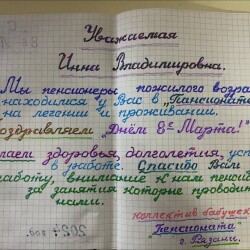 Уважаемая
Инна Владимировна.
Мы пенсионеры, пожилого возра
находимся у Вас в „Пансионате
на лечении и проживании.
оздравляем „Днём 8ᵉ Марта!"
лаем здоровья, долголетия, усп
в работе. Спасибо Вам
аботу, внимание к нам пенси
за занятия которые проводит
нами.
коллектив бабушек
Пансионата
г. Рязани.
2024 год.